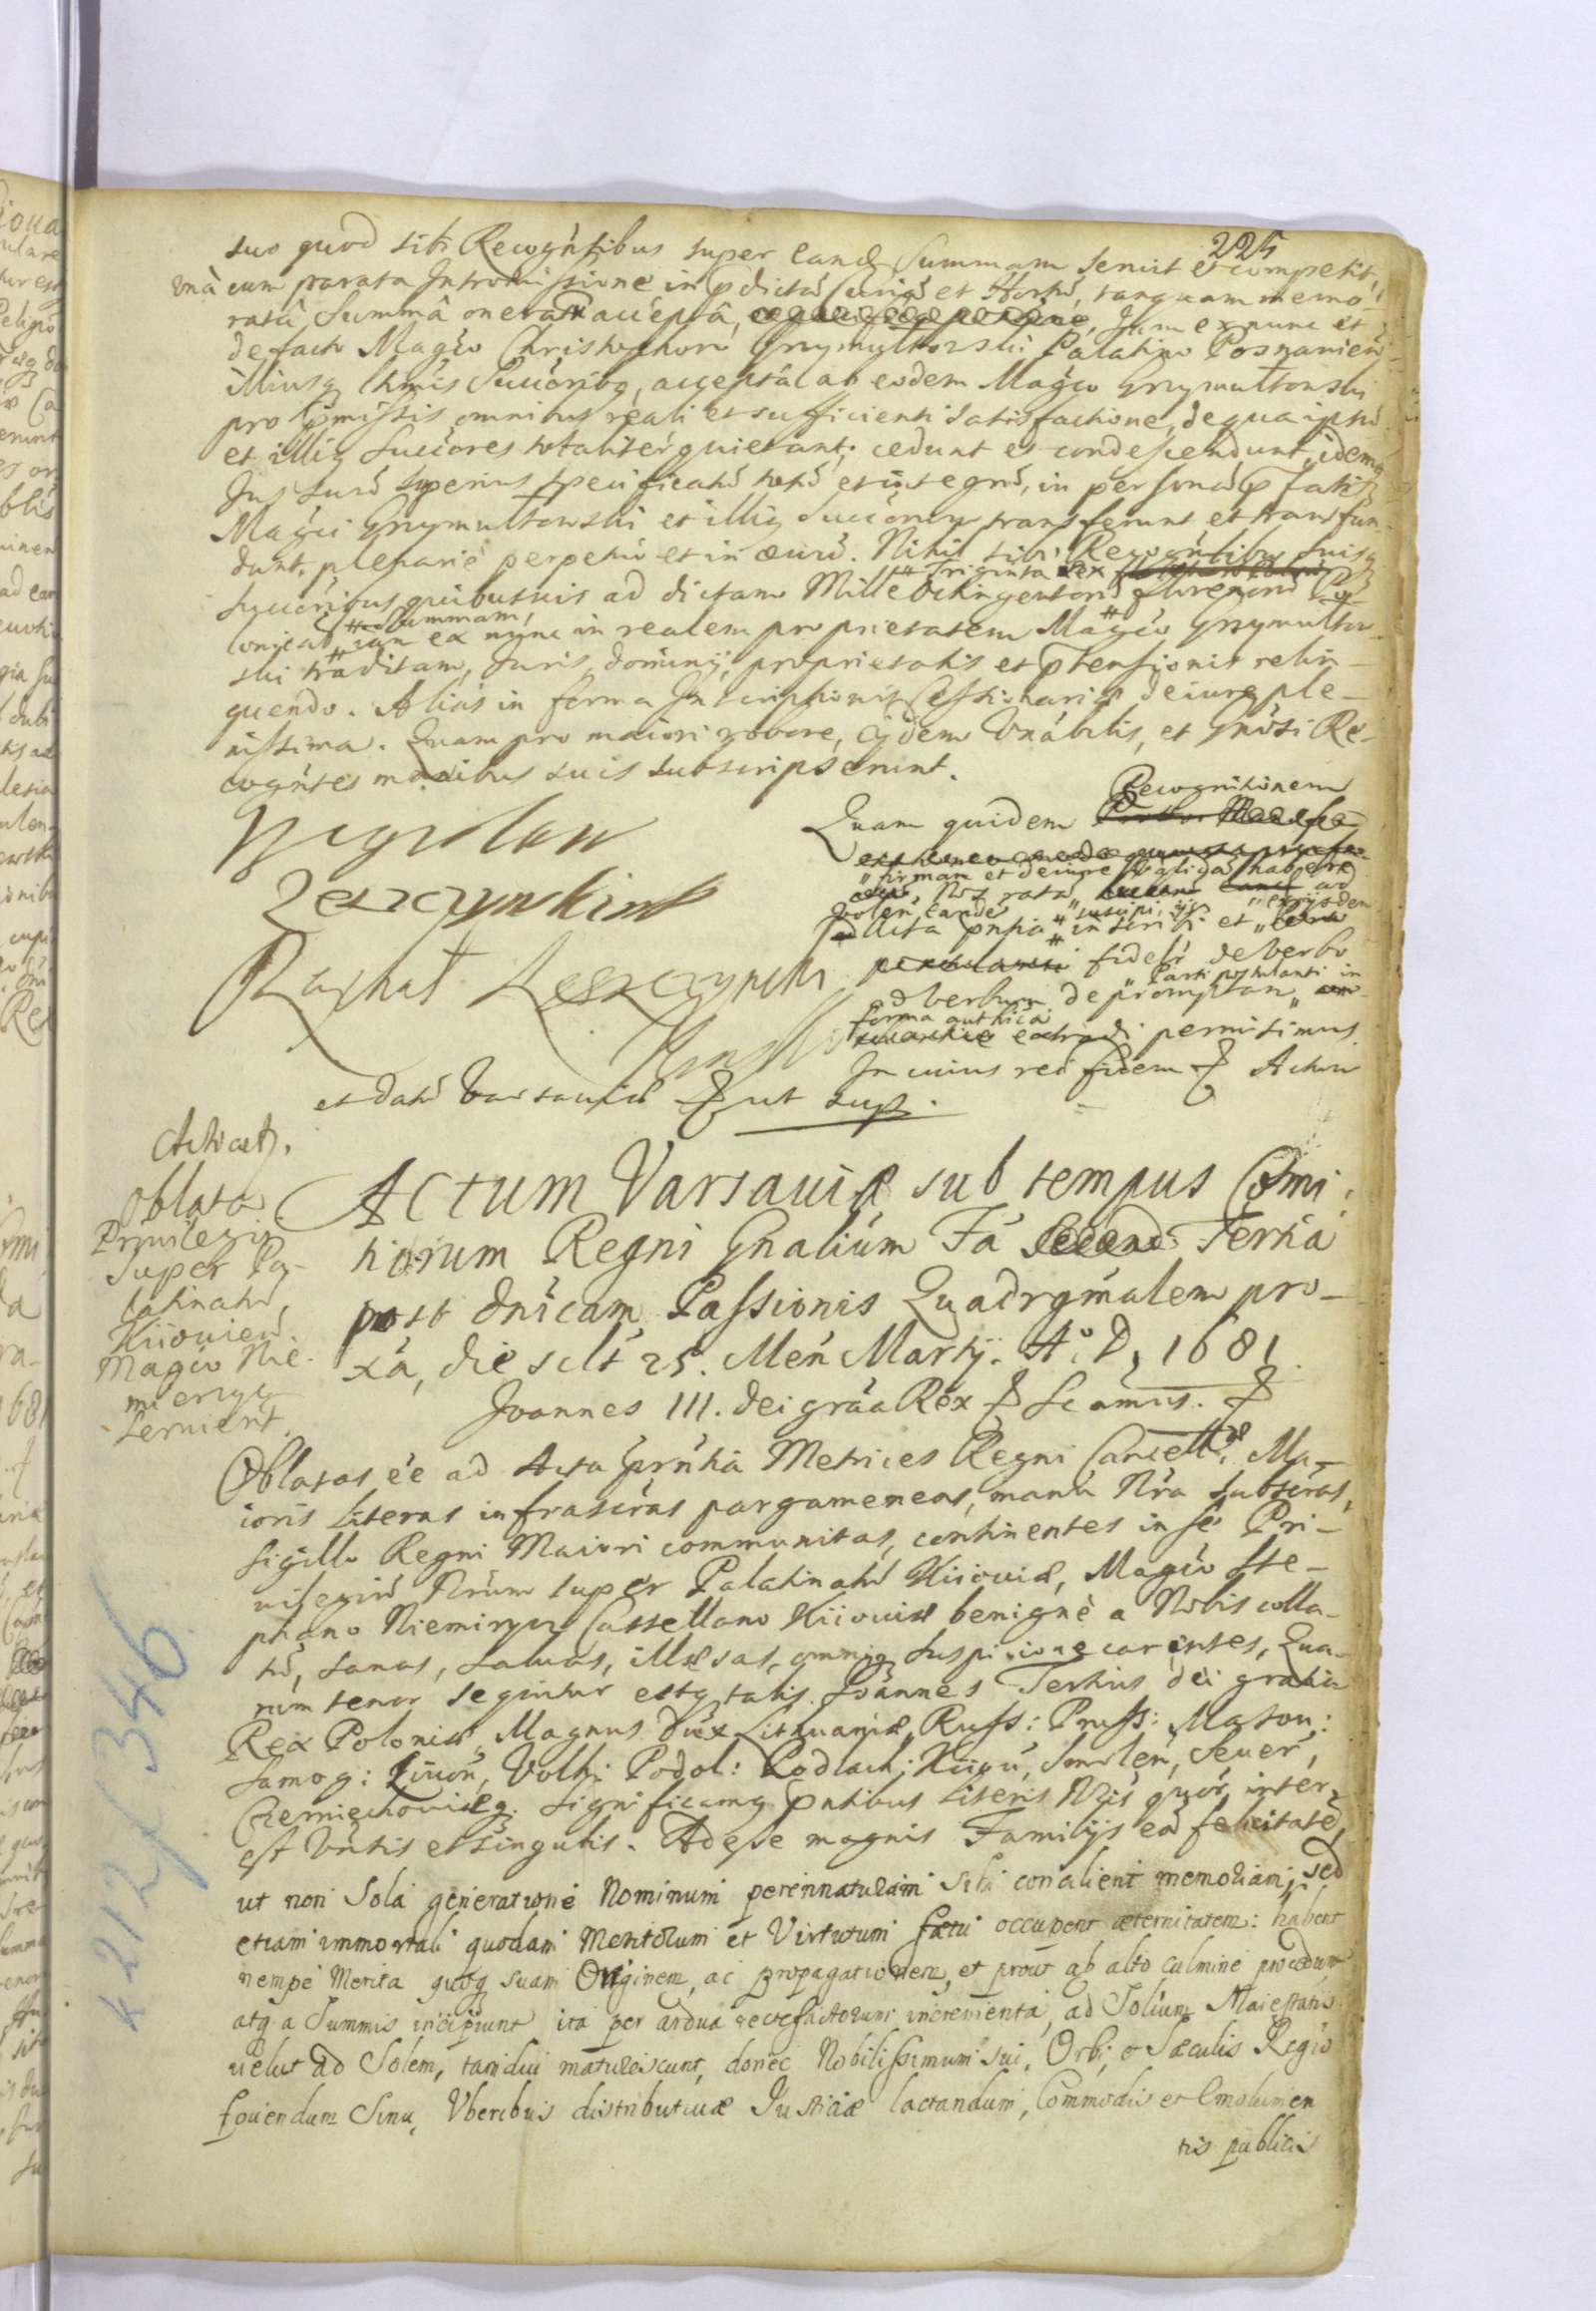 225
suo quod sibi Recogńtibus super eand Summam servit et competit,
vnà cum parata Intromissione in pdictá Curiá et Hortú, tanquam memo-
ratâ Summâ onerata acceptâ, Jam ex nunc et
de facto Magćo Christophoro Grzymułtowski Palatino Posnanień
illiusq ltimis Succoribq, acceptâ ab eodem Magćo Grzymułtowski
pro pmissis omnibus reali et sufficienti satisfactione, de qua ipsú
et illiq Succores totaliter quietant; cedunt et condescendunt, idemq
Jus suú superius specificatú totú et integrú, in personá pfati
Magći Grzymułtowski et illiq Succorum transferunt et transfun-
dunt. plenarie perpetuo et in ævú. Nihil sibi Recogńtibus suisq
Succoribus quibusvis ad dictam Mille Octingentorú Triginta Sex florenorú Po-
lonical Summam, iam ex nunc in realem proprietatem Magćo Grzymułtow-
ski traditam, Juris, dominij, proprietatis et ptensionis relin-
quendo. Aliás in forma Inscriptionis Cessionariæ de iure ple-
nissima. Quam pro maiori robore, ijdem Vnábilis, et Gnósi Re-
cogńtes manibus suis subscripserunt.
Bogusław
Leszczynski
Raphał Leszczynski
Recognitionem
Quam quidem
firmam et de iure validá habere
Nos ratá, ad
volen, eandé suscipi, ijs exijsdem
Acta pntia inscribi et
fidelr de verbo
ad verbum depromptam Parti postulanti in
forma authcá
extradi permisimus.
In cuius rei fidem Actum
et datú Varsaviæ ut sup.
Act. cast.
Oblata
Privilegij
super Pa-
latinatú,
Kiiovień.
Magćo Nie-
mierycz
servient.
Actum Varsaviæ sub tempus Comi-
tiorum Regni Gńalium Fá Tertiá
post dnicam Passionis Quadrgmalem pro-
xá, die sclt 25. Meń Martij. Aº D, 1681
Joannes III. dei gráa Rex Scámus.
Oblatas ée ad Acta prńtia Metrices Regni Cancellræ. Ma-
ioris literas infrascras pargameneas, manú Nŕa subscras,
sigillo Regni Maiori communitas, continentes in se Pri-
vilegiú Nrúm super Palatinatú Kiioviæ, Magćo Ste-
phano Niemirycz Castellano Kiioviæ benignè a Nobis colla-
tú, sanas, salvas, illæsas, omniq suspicione carentes, Qua-
rúm tenor sequitur estq talis. Joannes Tertius dei gratia
Rex Poloniæ, Magnus Dux Lithuaniæ, Russ: Pruss: Masov:
Samog: Livoń, Volhi: Podol: Podlach: Kiiov, Smoleń, Sever,
Czerniechoviæq. Significamq pntibus literis Nris quór. inter-
est Vńtis et singulis. Adesse magnis Familijs eá felicitaté,
ut non Sola generatione Nominum perennaturam sibi concilient memoriam, sed
etiam immortali quodam Meritorum et Virtutum fætu occupent æternitatem: habent
nempe Merita quoq suam Originem, ac propagationem, et prout ab alto culmine procedunt
atq a Summis incipiunt ita per ardua rectefactorum incrementa, ad Solium Maiestatis
velut ad Solem, tamdiu maturescunt, donec Nobilissimum sui, Orbi, & Sæculis Regio
fovendum Sinu, Vberibus distributivæ Justitiæ lactandum, Commodis et Emolumen
tis publicis
k 212/346